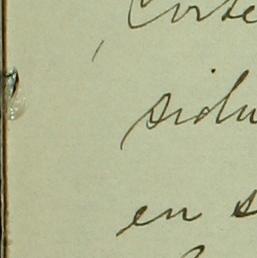 Corte
sidu
en s